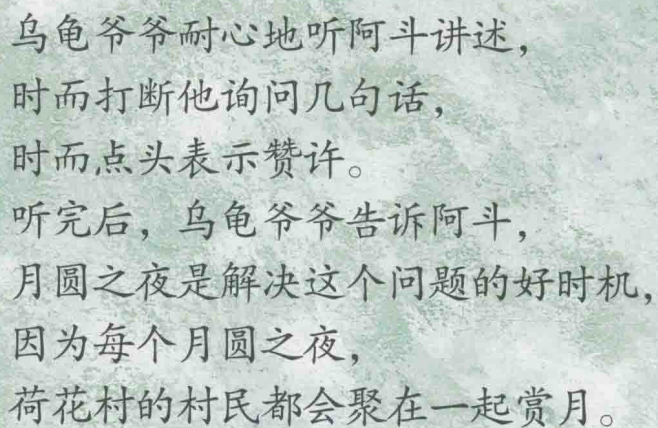 乌龟爷爷耐心地听阿斗讲述，
时而打断他询问几句话，
时而点头表示赞许。
听完后，乌龟爷爷告诉阿斗，
月圆之夜是解决这个问题的好时机，
因为每个月圆之夜，
荷花村的村民都会聚在一起赏月。